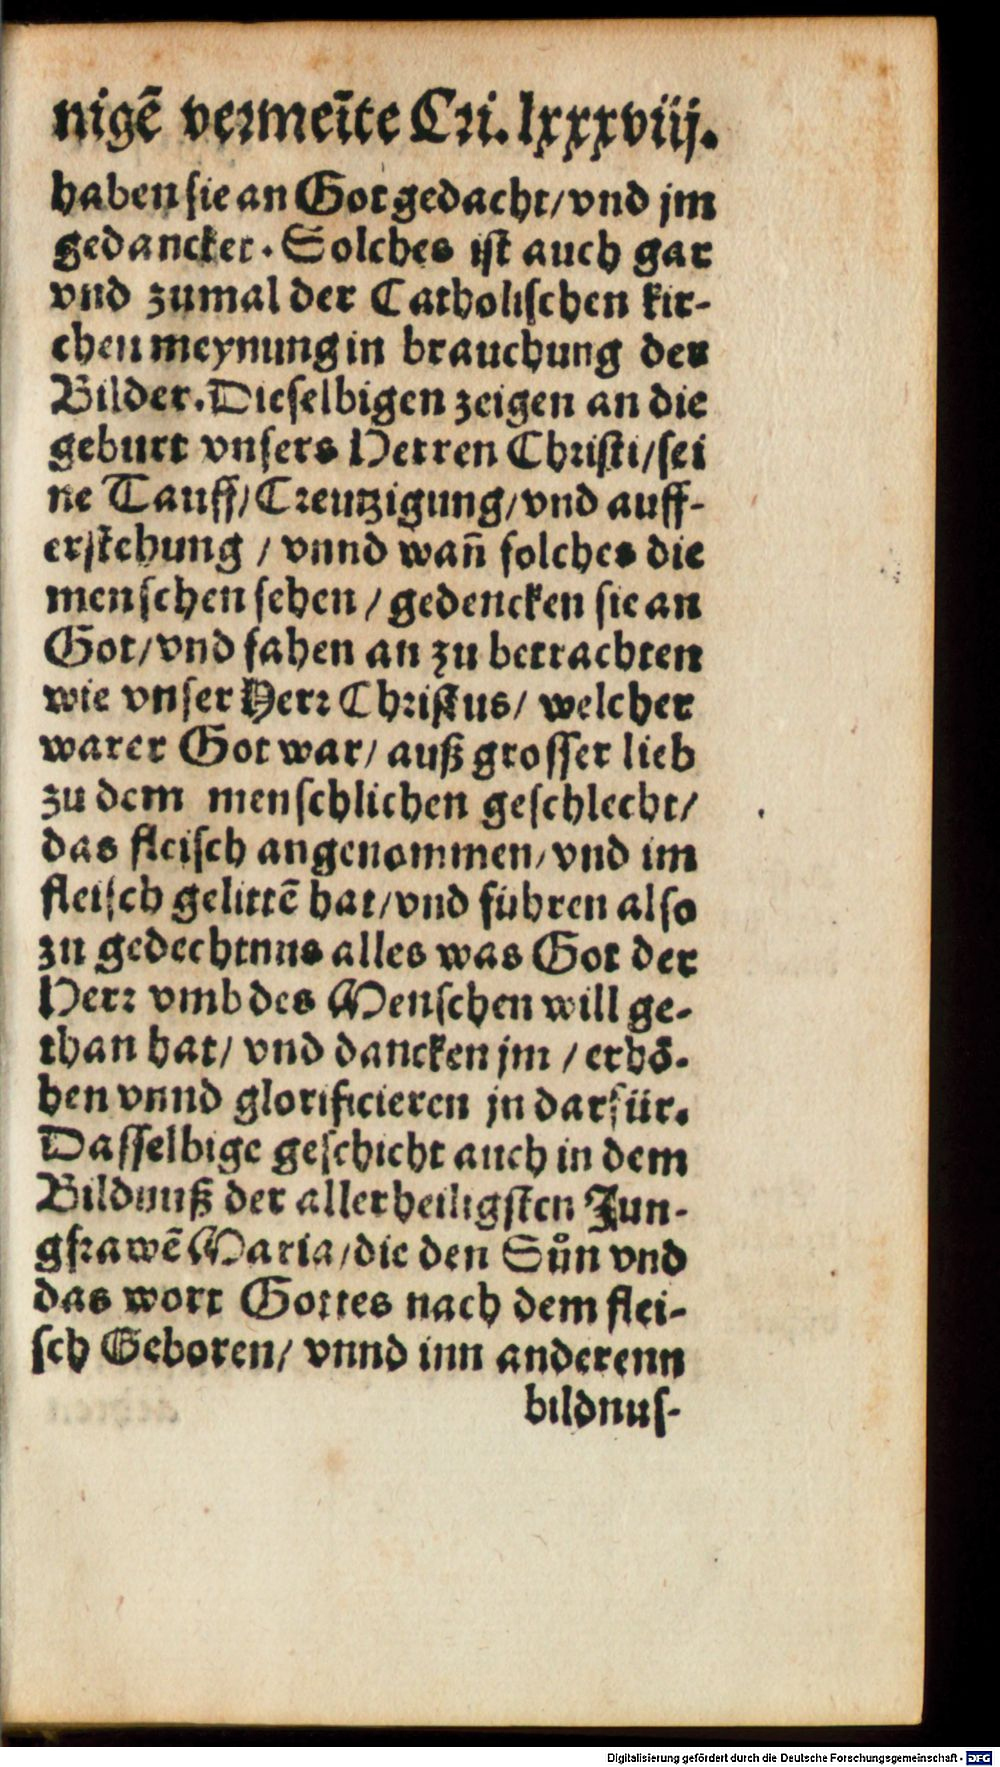 nigē vermeīte Cri. lxxxviij.
haben sie an Got gedacht/vnd jm
gedancket. Solches ist auch gar
vnd zumal der Catholischen kir-
chen meynung in brauchung der
Bilder. Dieselbigen zeigen an die
geburt vnsers Herren Christi/sei
ne Tauff/Creutzigung/vnd auff-
erstehung / vnnd wañ solches die
menschen sehen / gedencken sie an
Got/vnd fahen an zu betrachten
wie vnser Herr Christus/ welcher
warer Got war/ auß grosser lieb
zu dem menschlichen geschlecht/
das fleisch angenommen/vnd im
fleisch gelittē hat/vnd führen also
zu gedechtnus alles was Got der
Herr vmb des Menschen will ge-
than hat/ vnd dancken jm / erhö-
hen vnnd glorificieren jn darfür.
Dasselbige geschicht auch in dem
Bildnuß der allerheiligsten Jun-
gfrawē Maria/die den Sůn vnd
das wort Gottes nach dem flei-
sch Geboren/ vnnd inn anderenn
bildnus-
Digitalisierung gefördert durch die Deutsche Forschungsgemeinschaft - DFG